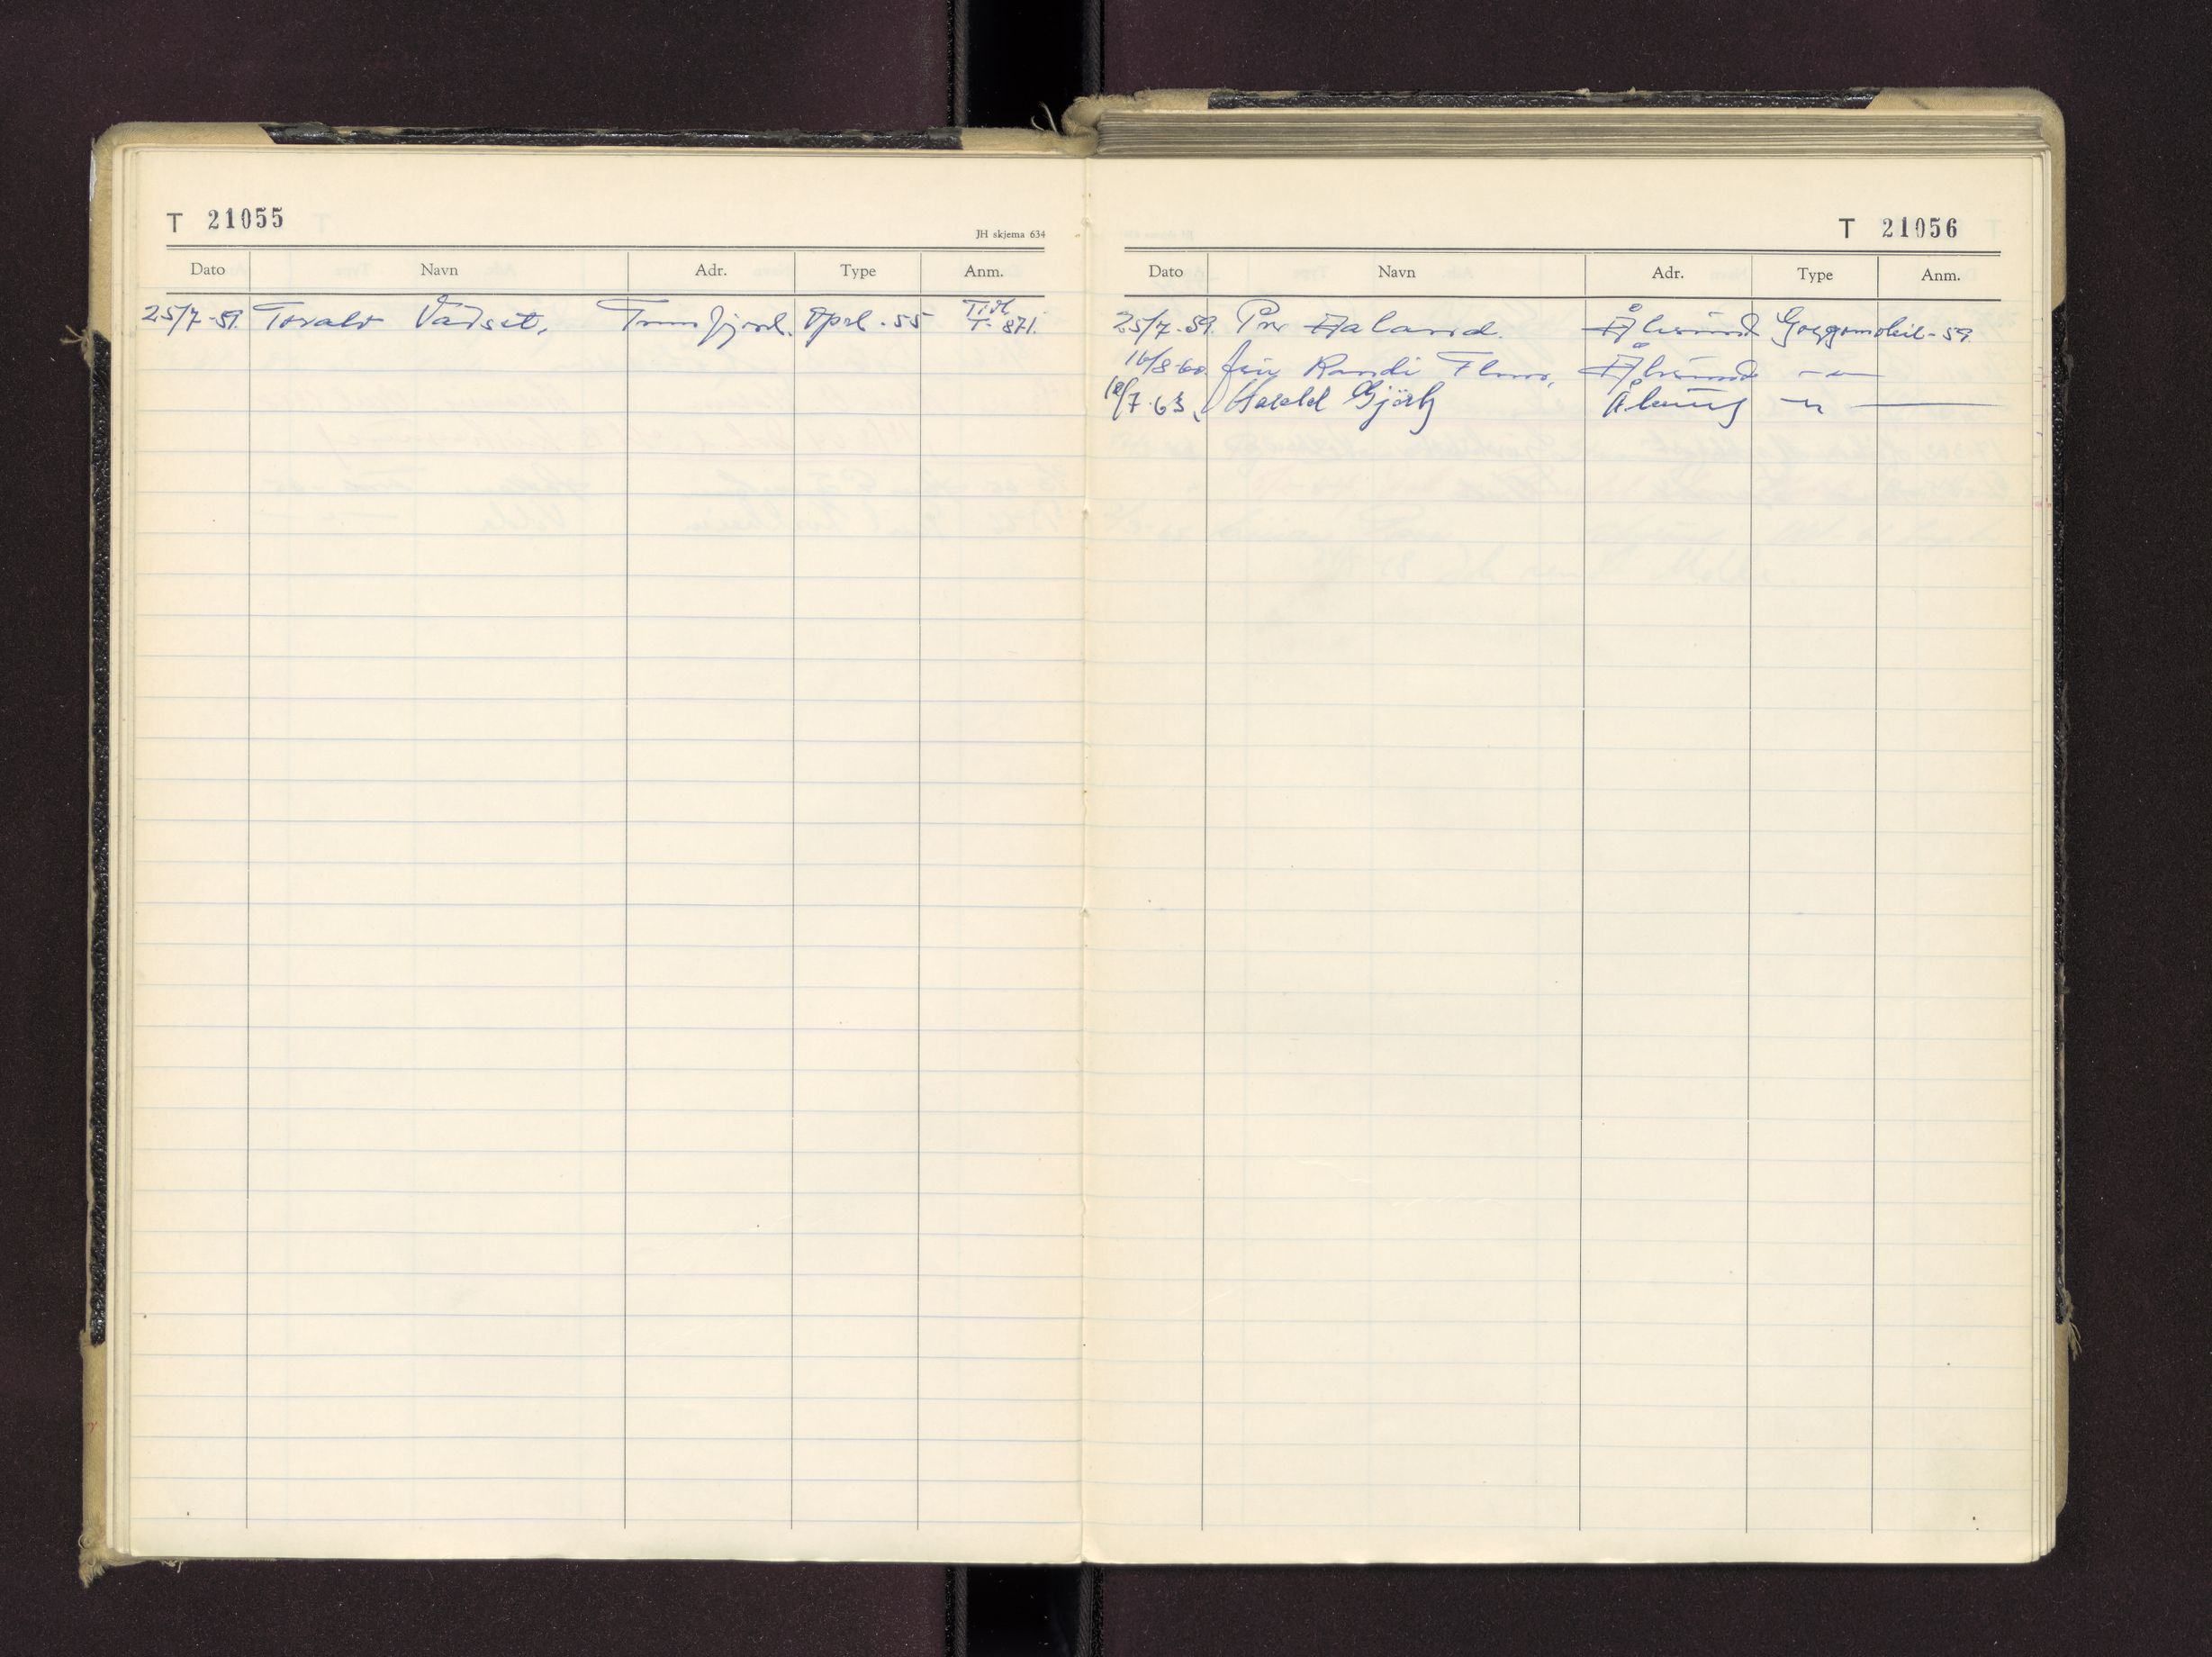 T 21055
JH skjema 634
Dato Navn Adr. Type Anm.
25/7-59. Torald Vadset, Tresfjord. Opel-55 Tidl. T-871.
T 21056
Dato Navn Adr. Type Anm.
25/7-59. Per Aaland. Ålesund Goggomobil-59.
16/8-60. Randi Ålesund -"-
/7-63, Harald Ålesund -"-